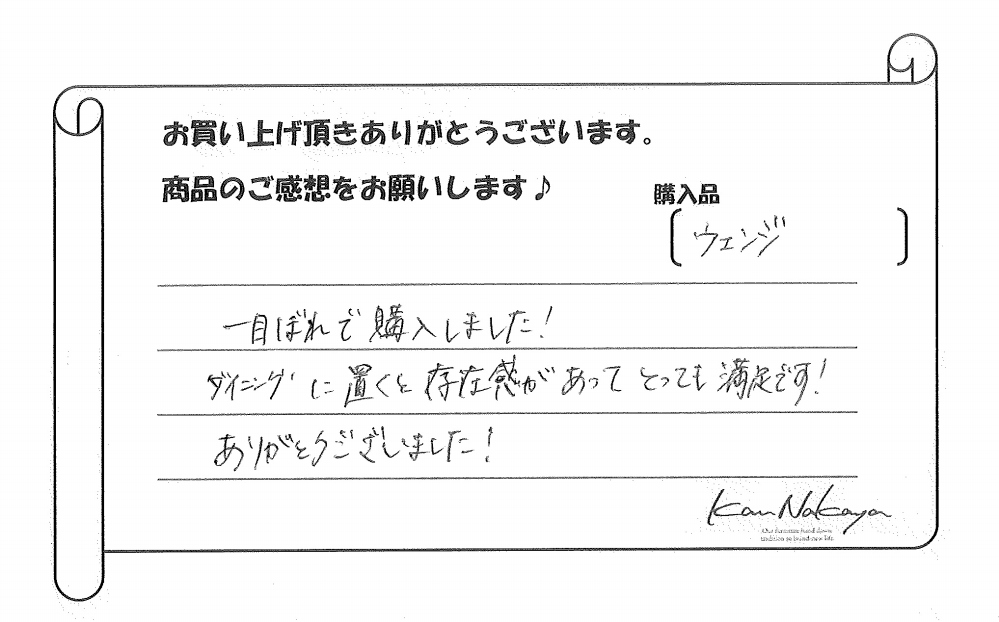 お買い上げ頂きありがとうございます。
商品のご感想をお願いします♪
購入品
ウェンジ
一目ぼれで購入しました!
ダイニングに置くと存在感があってとっても満足です!
ありがとうございました!
Kan Nakaya
Our furniture hand down
tradition to brand-new life